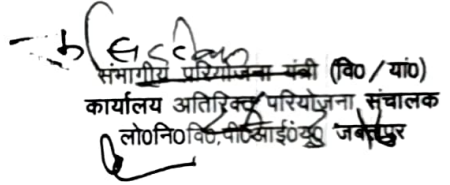 संभागीय परियोजना यंत्री (वि०/यां०)
कार्यालय अतिरिक्त परियोजना संचालक
लो०नि०वि०,पी०आई०यू० जबलपुर